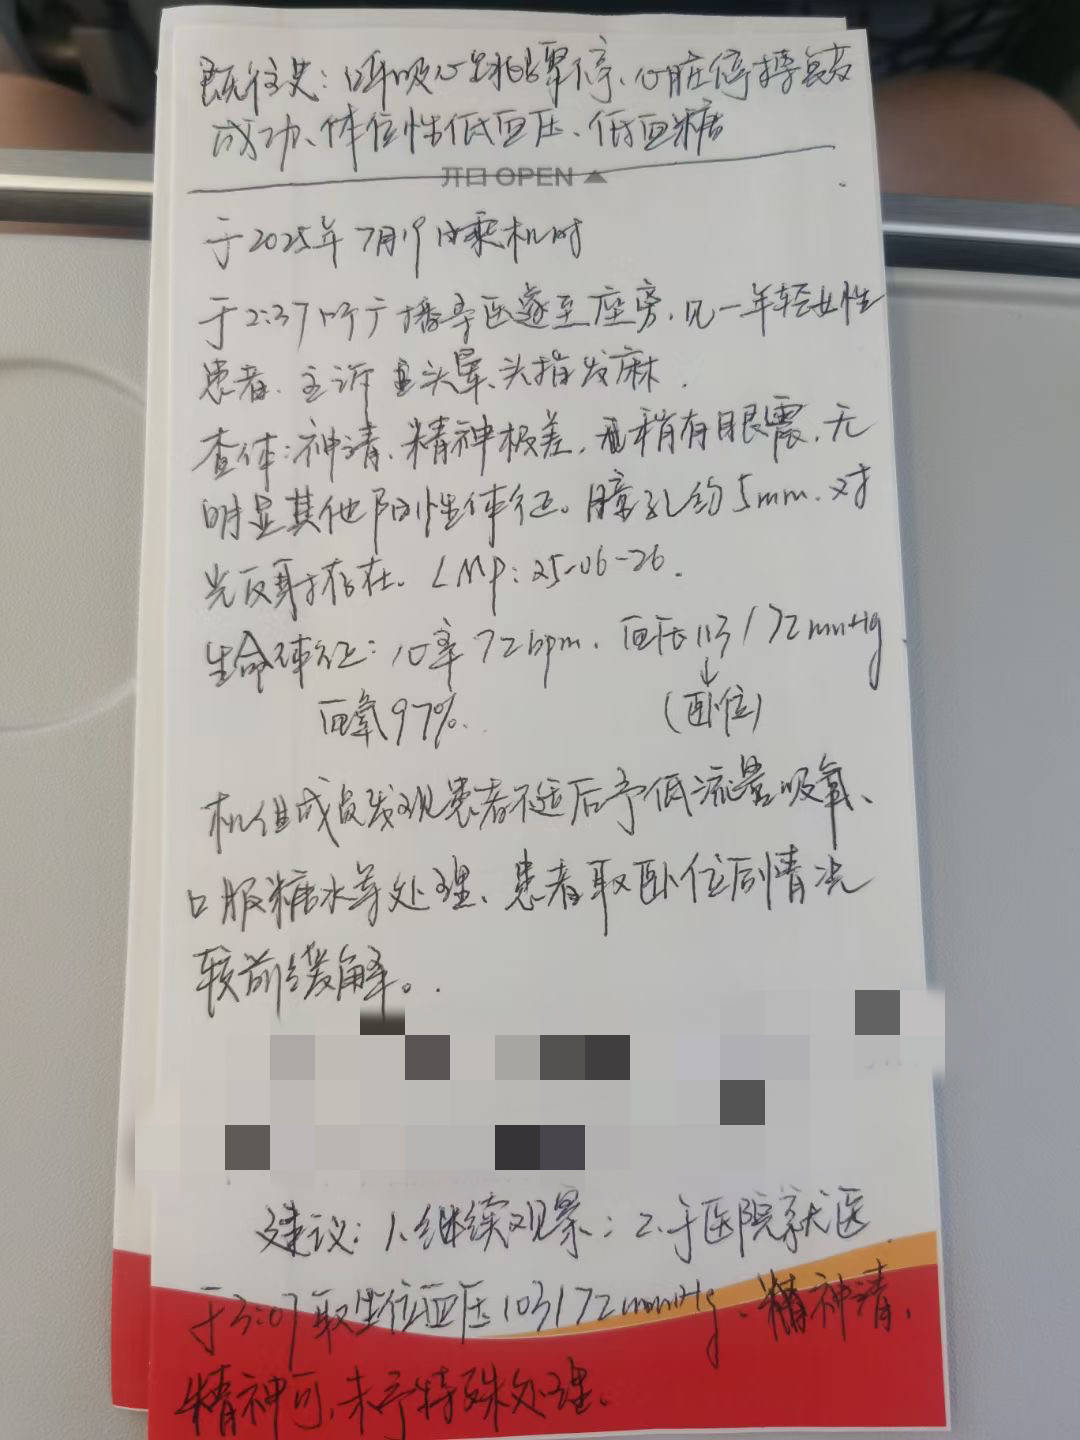 既往史：呼吸心跳骤停、心脏停搏复苏
成功、体位性低血压、低血糖
开口 OPEN
于2025年7月19日乘机时
于2:37听广播寻医遂至座旁，见一年轻女性
患者，主诉头晕、头指发麻．
查体：神清、精神极差，稍有眼震，无
明显其他阳性体征。瞳孔约5mm．对
光反射存在。LMP：25-06-26．
生命体征：心率72bpm．血压113/72mmHg．
血氧97%．（卧位）
机组成员发现患者不适后予低流量吸氧、
口服糖水等处理、患者取卧位后情况
较前缓解。．
建议：1.继续观察；2.于医院就医．
于3:07取坐位血压103/72mmHg、精神清，
精神可，未予特殊处理．